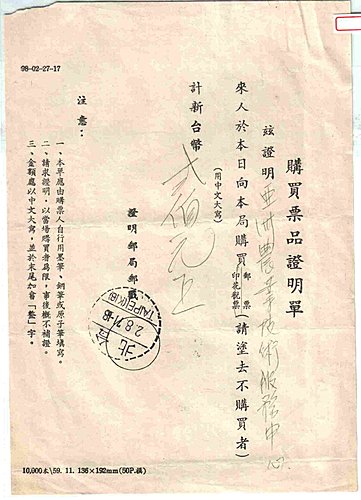 98-02-27-17
購買票品證明單
茲證明亞洲農業技術服務中心
來人於本日向本局購買郵票印花稅票(請塗去不購買者)
(用中文大寫)
計新台幣 貳佰元正
證明郵局郵戳
台北
TAIPEI
2.8.71
注意：
一、本單應由購票人自行用墨筆、鋼筆或原子筆填寫。
二、請求證明，以當場購買者為限，事後概不補證。
三、金額應以中文大寫，並於末尾加書「整」字。
10,000本\59. 11. 136×192mm(50P.摸)